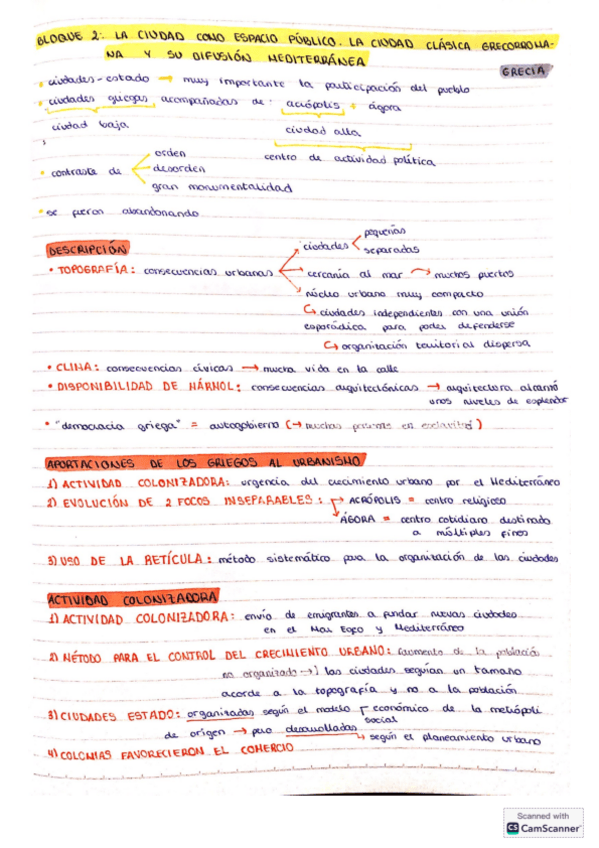 BLOQUE 2: LA CIUDAD COMO ESPACIO PÚBLICO. LA CIUDAD CLÁSICA GRECORROMA-
NA Y SU DIFUSIÓN MEDITERRÁNEA
GRECIA
• ciudades-estado → muy importante la participación del pueblo
• ciudades griegas acompañadas de: acrópolis + ágora
ciudad baja
ciudad alta
centro de actividad política
• contraste de
orden
desorden
gran monumentalidad
• se fueron abandonando
DESCRIPCIÓN
• TOPOGRAFÍA: consecuencias urbanas
ciudades
pequeñas
separadas
cercanía al mar → muchos puertos
núcleo urbano muy compacto
↳ ciudades independientes con una unión
esporádica para poder defenderse
↳ organización territorial dispersa
• CLIMA: consecuencias cívicas → mucha vida en la calle
• DISPONIBILIDAD DE MÁRMOL: consecuencias arquitectónicas → arquitectura alcanzó
unos niveles de esplendor
• "democracia griega" = autogobierno (→ muchas personas en esclavitud)
APORTACIONES DE LOS GRIEGOS AL URBANISMO
1) ACTIVIDAD COLONIZADORA: urgencia del crecimiento urbano por el Mediterráneo
2) EVOLUCIÓN DE 2 FOCOS INSEPARABLES: → ACRÓPOLIS = centro religioso
→ ÁGORA = centro cotidiano destinado
a múltiples fines
3) USO DE LA RETÍCULA: método sistemático para la organización de las ciudades
ACTIVIDAD COLONIZADORA
1) ACTIVIDAD COLONIZADORA: envío de emigrantes a fundar nuevas ciudades
en el Mar Egeo y Mediterráneo
2) MÉTODO PARA EL CONTROL DEL CRECIMIENTO URBANO: (aumento de la población
en organizado →) las ciudades seguían un tamaño
acorde a la topografía y no a la población
3) CIUDADES ESTADO: organizadas según el modelo económico de la metrópoli
social
de origen → pero desarrolladas
↳ según el planeamiento urbano
4) COLONIAS FAVORECIERON EL COMERCIO
Scanned with
CS CamScanner